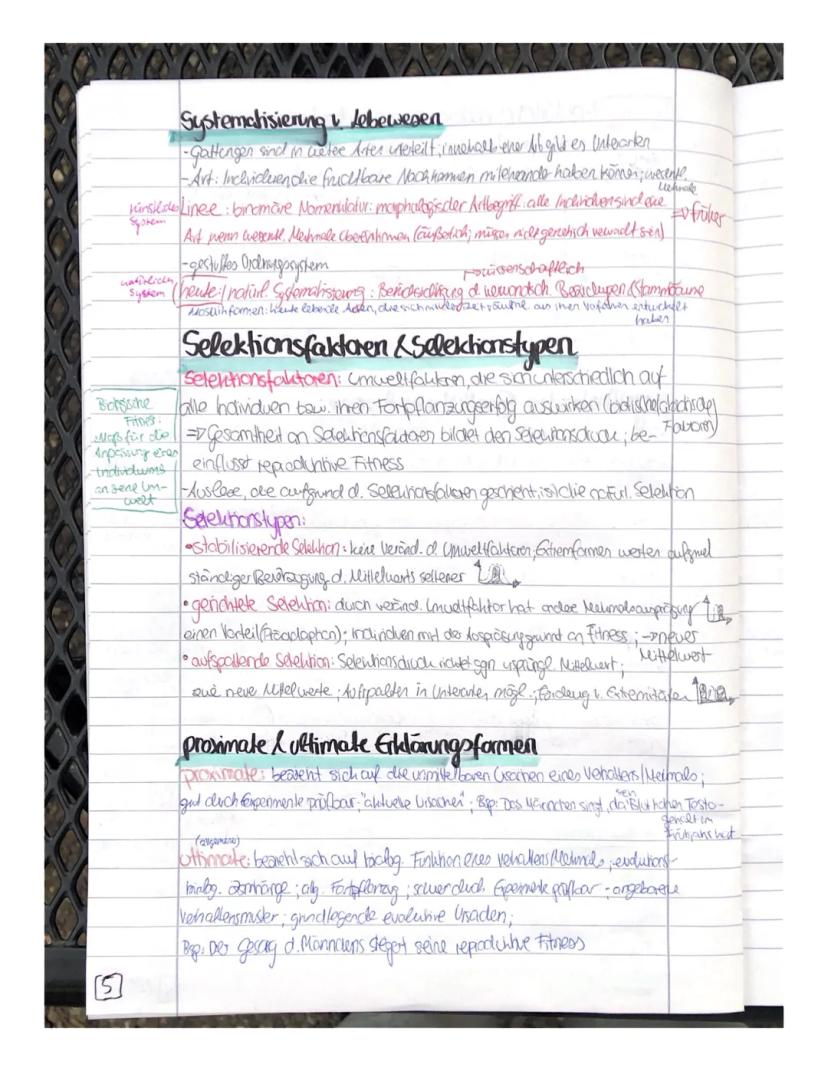 Systematisierung v. Lebewesen
-Gattungen sind in weitere Arten unterteilt; innerhalb einer Art gibt es Unterarten
-Art: Individuen die fruchtbare Nachkommen miteinander haben können; wesentl. Merkmale
künstliches System
Linée: binomäre Nomenklatur: morphologischer Artbegriff: alle Individuen sind eine => früher
Art wenn wesentl. Merkmale übereinstimmen (äußerlich; müssen nicht genetisch verwandt sein)
-gestuftes Ordnungssystem
-> wissenschaftlich
natürliches System
(heute) natürl. Systematisierung: Berücksichtigung d. verwandsch. Beziehungen (Stammbäume
Mosaikformen: heute lebende Arten, die sich aus ihren Vorfahren entwickelt haben
Selektionsfaktoren & Selektionstypen
Selektionsfaktoren: Umweltfaktoren, die sich unterschiedlich auf
alle Individuen bzw. ihren Fortpflanzungserfolg auswirken (biotische/abiotische Faktoren)
=> Gesamtheit an Selektionsfaktoren bildet den Selektionsdruck; be-
einflusst reproduktive Fitness
-Auslese, die aufgrund d. Selektionsfaktoren geschieht, ist die natürl. Selektion
Biologische
Fitness:
Maß für die
Anpassung eines
Individuums
an seine Um-
welt
Selektionstypen:
•stabilisierende Selektion: keine Veränd. d. Umweltfaktoren, Extremformen werden aufgrund
ständiger Bevorzugung d. Mittelwerts seltener
•gerichtete Selektion: durch veränd. Umweltfaktor hat andere Merkmalsausprägung
einen Vorteil (Präadaption); Individuen mit der Ausprägung gewinnt an Fitness; -> neuer Mittelwert
•aufspaltende Selektion: Selektionsdruck richtet sich gegen ursprüngl. Mittelwert;
zwei neue Mittelwerte; Aufspalten in Unterarten mögl.; Förderung v. Extremitäten
proximate & ultimate Erklärungsformen
proximate: bezieht sich auf die unmittelbaren Ursachen eines Verhaltens/Merkmals;
gut durch Experimente prüfbar; "aktuelle Ursachen"; Bsp: Das Männchen singt, da sein Blut hohen Testo-
gehalt im Frühjahr hat
(allgemeine)
ultimate: bezieht sich auf biolog. Funktion eines Verhaltens/Merkmals; evolutions-
biolog. Zsmhänge; allg. Fortpflanzung; schwer durch Experimente prüfbar; angeborene
Verhaltensmuster; grundlegende evolutive Ursachen;
Bsp: Der Gesang d. Männchens steigert seine reproduktive Fitness
5